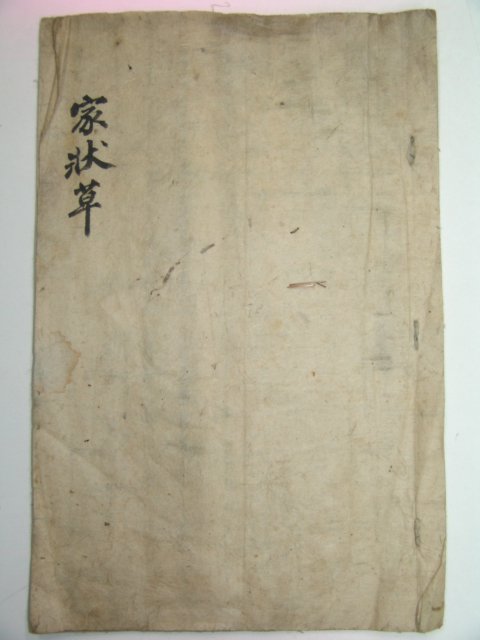 家狀草